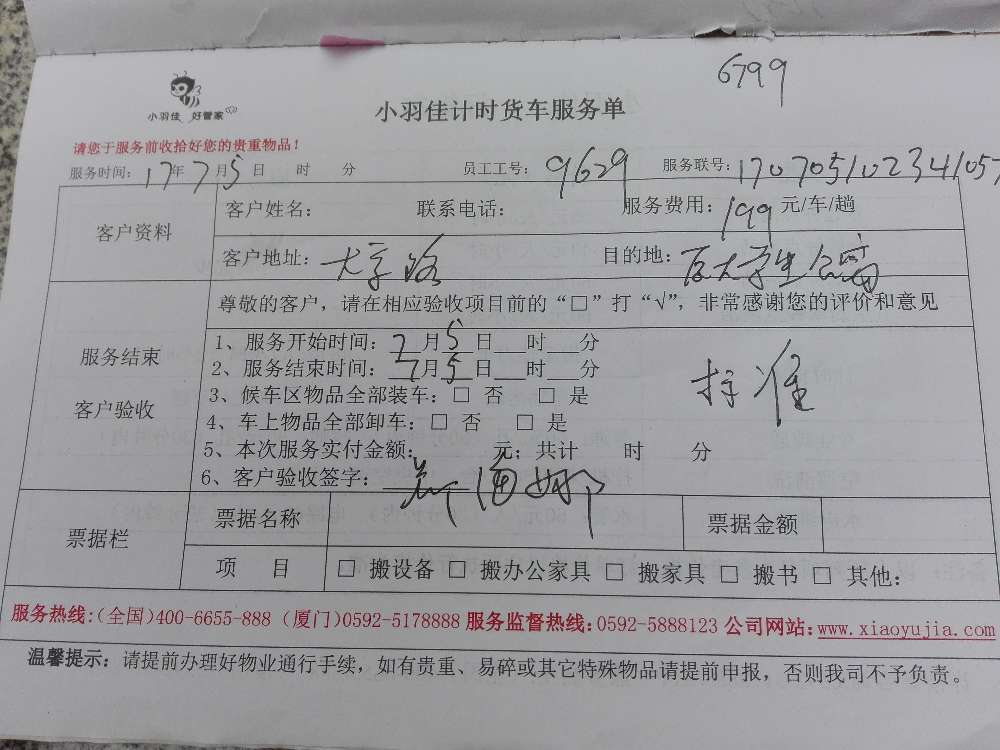 6799
小羽佳 好管家
小羽佳计时货车服务单
请您于服务前收拾好您的贵重物品！
服务时间：17年7月5日 时 分 员工工号：9629 服务联号：170705102341057
客户资料
客户姓名： 联系电话： 服务费用：199元/车/趟
客户地址：大学路 目的地：厦大学生公寓
服务结束
客户验收
尊敬的客户，请在相应验收项目前的“□”打“√”，非常感谢您的评价和意见
1、服务开始时间：7月5日 时 分
2、服务结束时间：7月5日 时 分
标准
3、候车区物品全部装车：□ 否 □ 是
4、车上物品全部卸车：□ 否 □ 是
5、本次服务实付金额： 元；共计 时 分
6、客户验收签字：
票据栏
票据名称 票据金额
项 目 □ 搬设备 □ 搬办公家具 □ 搬家具 □ 搬书 □ 其他：
服务热线：（全国）400-6655-888 （厦门）0592-5178888 服务监督热线：0592-5888123 公司网站：www.xiaoyujia.com
温馨提示：请提前办理好物业通行手续，如有贵重、易碎或其它特殊物品请提前申报，否则我司不予负责。